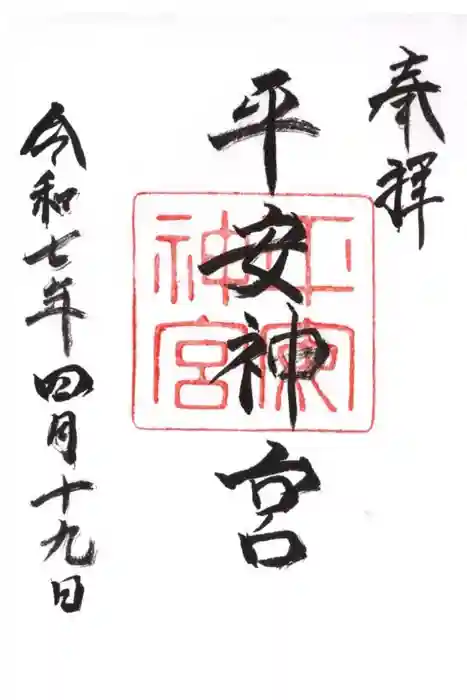 奉拝
平安神宮
平安神宮
令和七年四月十九日